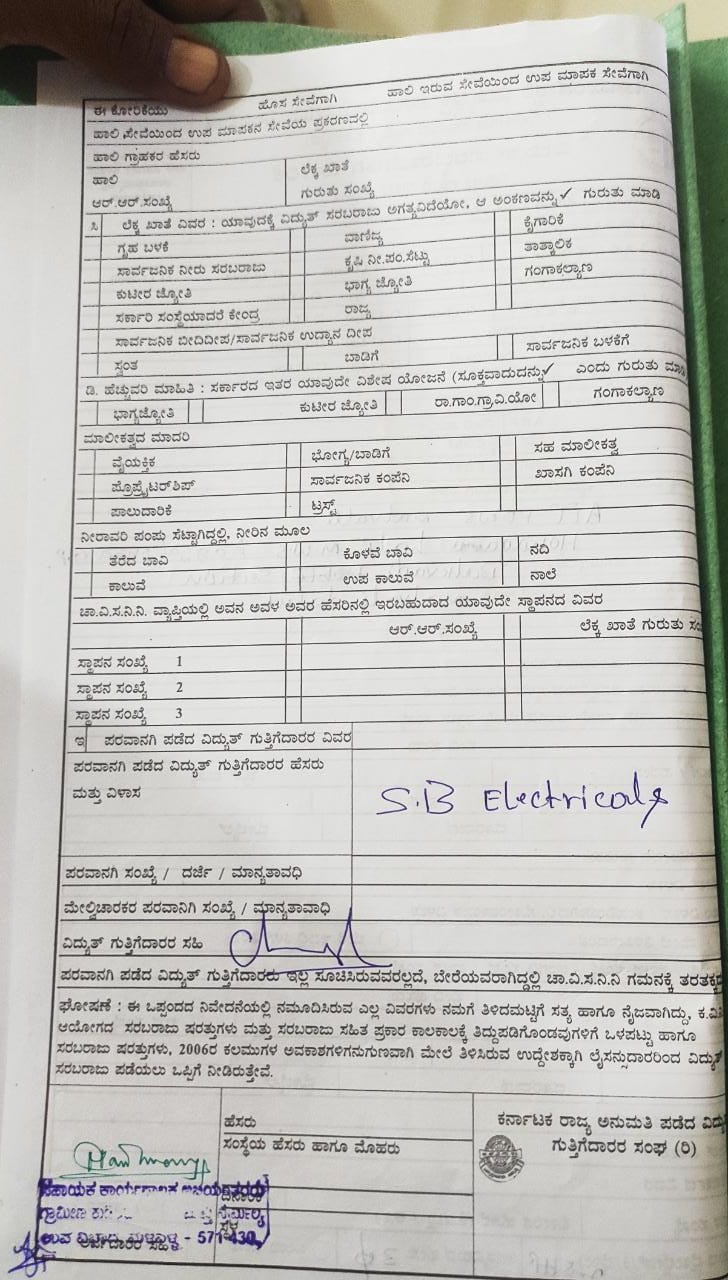 ಈ ಕೋರಿಕೆಯು ಹೊಸ ಸೇವೆಗಾಗಿ ಹಾಲಿ ಇರುವ ಸೇವೆಯಿಂದ ಉಪ ಮಾಪಕ ಸೇವೆಗಾಗಿ
ಹಾಲಿ ಸೇವೆಯಿಂದ ಉಪ ಮಾಪಕನ ಸೇವೆಯ ಪ್ರಕರಣದಲ್ಲಿ
ಹಾಲಿ ಗ್ರಾಹಕರ ಹೆಸರು
ಹಾಲಿ ಲೆಕ್ಕ ಖಾತೆ
ಆರ್.ಆರ್.ಸಂಖ್ಯೆ ಗುರುತು ಸಂಖ್ಯೆ
ಸಿ ಲೆಕ್ಕ ಖಾತೆ ವಿವರ : ಯಾವುದಕ್ಕೆ ವಿದ್ಯುತ್ ಸರಬರಾಜು ಅಗತ್ಯವಿದೆಯೋ, ಆ ಅಂಕಣವನ್ನು ✓ ಗುರುತು ಮಾಡಿ
ಗೃಹ ಬಳಕೆ ವಾಣಿಜ್ಯ ಕೈಗಾರಿಕೆ
ಸಾರ್ವಜನಿಕ ನೀರು ಸರಬರಾಜು ಕೃಷಿ ನೀ.ಪಂ.ಸೆಟ್ಟು ತಾತ್ಕಾಲಿಕ
ಕುಟೀರ ಜ್ಯೋತಿ ಭಾಗ್ಯ ಜ್ಯೋತಿ ಗಂಗಾಕಲ್ಯಾಣ
ಸರ್ಕಾರಿ ಸಂಸ್ಥೆಯಾದರೆ ಕೇಂದ್ರ ರಾಜ್ಯ
ಸಾರ್ವಜನಿಕ ಬೀದಿದೀಪ/ಸಾರ್ವಜನಿಕ ಉದ್ಯಾನ ದೀಪ
ಸ್ವಂತ ಬಾಡಿಗೆ ಸಾರ್ವಜನಿಕ ಬಳಕೆಗೆ
ಡಿ. ಹೆಚ್ಚುವರಿ ಮಾಹಿತಿ : ಸರ್ಕಾರದ ಇತರ ಯಾವುದೇ ವಿಶೇಷ ಯೋಜನೆ (ಸೂಕ್ತವಾದುದನ್ನು ✓ ಎಂದು ಗುರುತು
ಭಾಗ್ಯಜ್ಯೋತಿ ಕುಟೀರ ಜ್ಯೋತಿ ರಾ.ಗಾಂ.ಗ್ರಾ.ವಿ.ಯೋ ಗಂಗಾಕಲ್ಯಾಣ
ಮಾಲೀಕತ್ವದ ಮಾದರಿ
ವೈಯಕ್ತಿಕ ಭೋಗ್ಯ/ಬಾಡಿಗೆ ಸಹ ಮಾಲೀಕತ್ವ
ಪ್ರೊಪ್ರೈಟರ್‌ಶಿಪ್ ಸಾರ್ವಜನಿಕ ಕಂಪನಿ ಖಾಸಗಿ ಕಂಪೆನಿ
ಪಾಲುದಾರಿಕೆ ಟ್ರಸ್ಟ್
ನೀರಾವರಿ ಪಂಪು ಸೆಟ್ಟಾಗಿದ್ದಲ್ಲಿ, ನೀರಿನ ಮೂಲ
ತೆರೆದ ಬಾವಿ ಕೊಳವೆ ಬಾವಿ ನದಿ
ಕಾಲುವೆ ಉಪ ಕಾಲುವೆ ನಾಲೆ
ಚಾ.ವಿ.ಸ.ನಿ.ನಿ. ವ್ಯಾಪ್ತಿಯಲ್ಲಿ ಅವನ ಅವಳ ಅವರ ಹೆಸರಿನಲ್ಲಿ ಇರಬಹುದಾದ ಯಾವುದೇ ಸ್ಥಾಪನದ ವಿವರ
ಆರ್.ಆರ್.ಸಂಖ್ಯೆ ಲೆಕ್ಕ ಖಾತೆ ಗುರುತು
ಸ್ಥಾಪನ ಸಂಖ್ಯೆ 1
ಸ್ಥಾಪನ ಸಂಖ್ಯೆ 2
ಸ್ಥಾಪನ ಸಂಖ್ಯೆ 3
ಇ ಪರವಾನಗಿ ಪಡೆದ ವಿದ್ಯುತ್ ಗುತ್ತಿಗೆದಾರರ ವಿವರ
ಪರವಾನಗಿ ಪಡೆದ ವಿದ್ಯುತ್ ಗುತ್ತಿಗೆದಾರರ ಹೆಸರು
ಮತ್ತು ವಿಳಾಸ
S.B Electricals
ಪರವಾನಗಿ ಸಂಖ್ಯೆ / ದರ್ಜೆ / ಮಾನ್ಯತಾವಧಿ
ಮೇಲ್ವಿಚಾರಕರ ಪರವಾನಿಗಿ ಸಂಖ್ಯೆ / ಮಾನ್ಯತಾವಾಧಿ
ವಿದ್ಯುತ್ ಗುತ್ತಿಗೆದಾರರ ಸಹಿ
ಪರವಾನಗಿ ಪಡೆದ ವಿದ್ಯುತ್ ಗುತ್ತಿಗೆದಾರರು ಇಲ್ಲಿ ಸೂಚಿಸಿರುವವರಲ್ಲದೆ, ಬೇರೆಯವರಾಗಿದ್ದಲ್ಲಿ ಚಾ.ವಿ.ಸ.ನಿ.ನಿ ಗಮನಕ್ಕೆ
ಘೋಷಣೆ : ಈ ಒಪ್ಪಂದದ ನಿವೇದನೆಯಲ್ಲಿ ನಮೂದಿಸಿರುವ ಎಲ್ಲ ವಿವರಗಳು ನಮಗೆ ತಿಳಿದಮಟ್ಟಿಗೆ ಸತ್ಯ ಹಾಗೂ ನೈಜವಾಗಿದ್ದು,
ಆಯೋಗದ ಸರಬರಾಜು ಷರತ್ತುಗಳು ಮತ್ತು ಸರಬರಾಜು ಸಹಿತ ಪ್ರಕಾರ ಕಾಲಕಾಲಕ್ಕೆ ತಿದ್ದುಪಡಿಗೊಂಡವುಗಳಿಗೆ ಒಳಪಟ್ಟು ಹಾಗೂ
ಸರಬರಾಜು ಷರತ್ತುಗಳು, 2006ರ ಕಲಮುಗಳ ಅವಕಾಶಗಳಿಗನುಗುಣವಾಗಿ ಮೇಲೆ ತಿಳಿಸಿರುವ ಉದ್ದೇಶಕ್ಕಾಗಿ ಲೈಸನ್ಸುದಾರರಿಂದ ವಿದ್ಯುತ್
ಸರಬರಾಜು ಪಡೆಯಲು ಒಪ್ಪಿಗೆ ನೀಡಿರುತ್ತೇವೆ.
ಹೆಸರು
ಸಂಸ್ಥೆಯ ಹೆಸರು ಹಾಗೂ ಮೊಹರು
ಕರ್ನಾಟಕ ರಾಜ್ಯ ಅನುಮತಿ ಪಡೆದ
ಗುತ್ತಿಗೆದಾರರ ಸಂಘ (ರಿ)
ದಿನಾಂಕ
ಸ್ಥಳ
ಗ್ರಾಮೀಣ
ಉಪ ವಿಭಾಗ, - 571 430
ಅರ್ಜಿದಾರರ ಸಹಿ